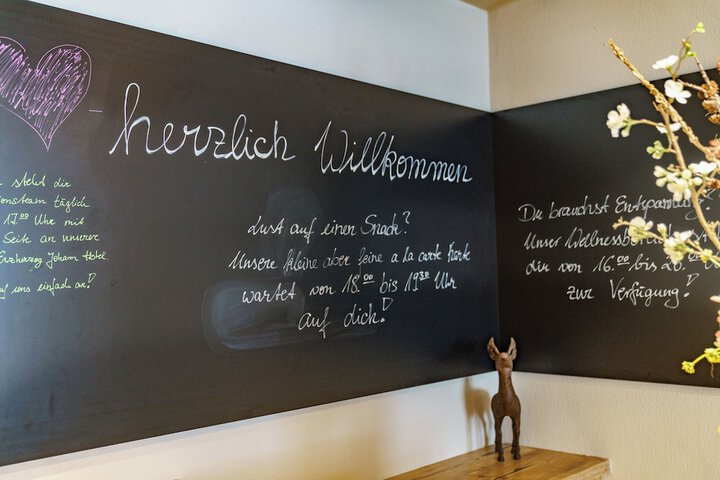 herzlich Willkommen
steht dir
täglich
17:00 Uhr mit
Seite an unserer
Erzherzog Johann Hotel
auf uns einfach an!
Lust auf einen Snack?
Unsere kleine aber feine a la carte Karte
wartet von 18:00 bis 19:30 Uhr
auf dich!
Du brauchst Entspannung?
Unser
dir von 16:00 bis 20:00
zur Verfügung!